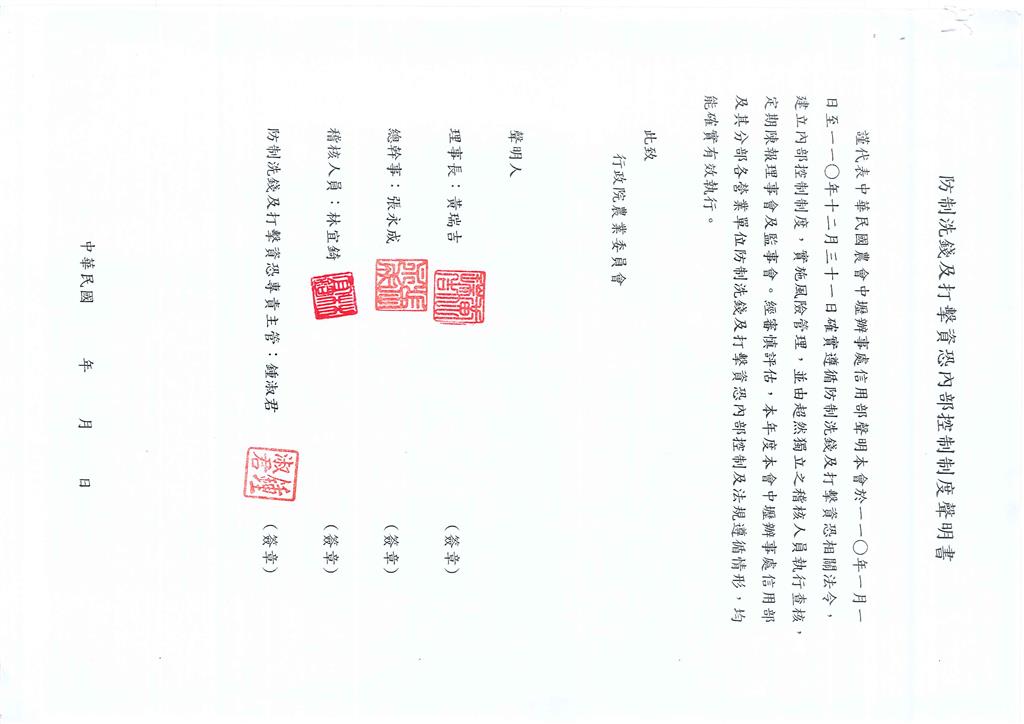 防制洗錢及打擊資恐內部控制制度聲明書
謹代表中華民國農會中壢辦事處信用部聲明本會於一一〇年一月一
日至一一〇年十二月三十一日確實遵循防制洗錢及打擊資恐相關法令，
建立內部控制制度，實施風險管理，並由超然獨立之稽核人員執行查核，
定期陳報理事會及監事會。經審慎評估，本年度本會中壢辦事處信用部
及其分部各營業單位防制洗錢及打擊資恐內部控制及法規遵循情形，均
能確實有效執行。
此致
行政院農業委員會
聲明人
理事長：黃瑞吉 （簽章）
總幹事：張永成 （簽章）
稽核人員：林宜錡 （簽章）
防制洗錢及打擊資恐專責主管：鍾淑君 鍾淑君 （簽章）
中華民國 年 月 日